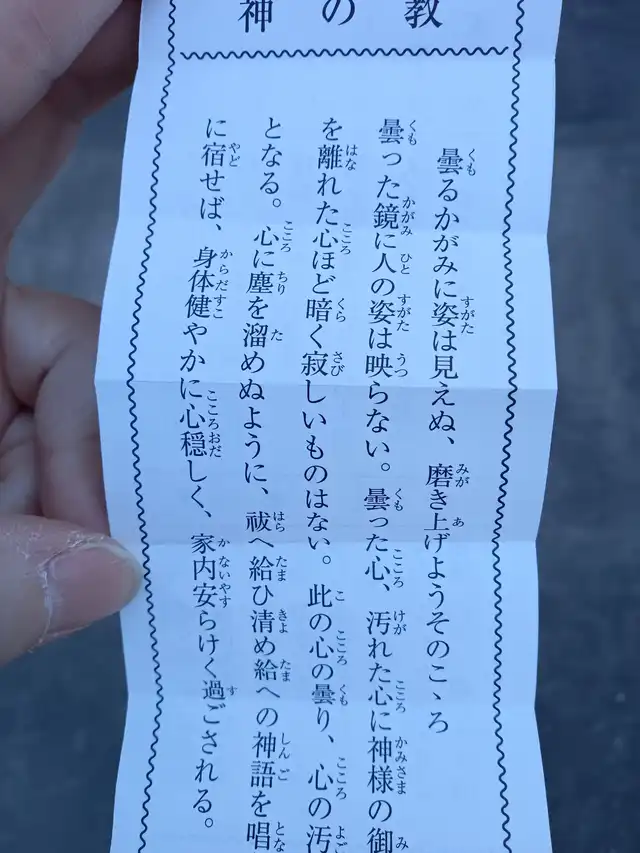 神の教
曇るかがみに姿は見えぬ、磨き上げようそのこゝろ
曇った鏡に人の姿は映らない。曇った心、汚れた心に神様の御
を離れた心ほど暗く寂しいものはない。此の心の曇り、心の汚
となる。心に塵を溜めぬように、祓へ給ひ清め給への神語を唱
に宿せば、身体健やかに心穏しく、家内安らけく過ごされる。